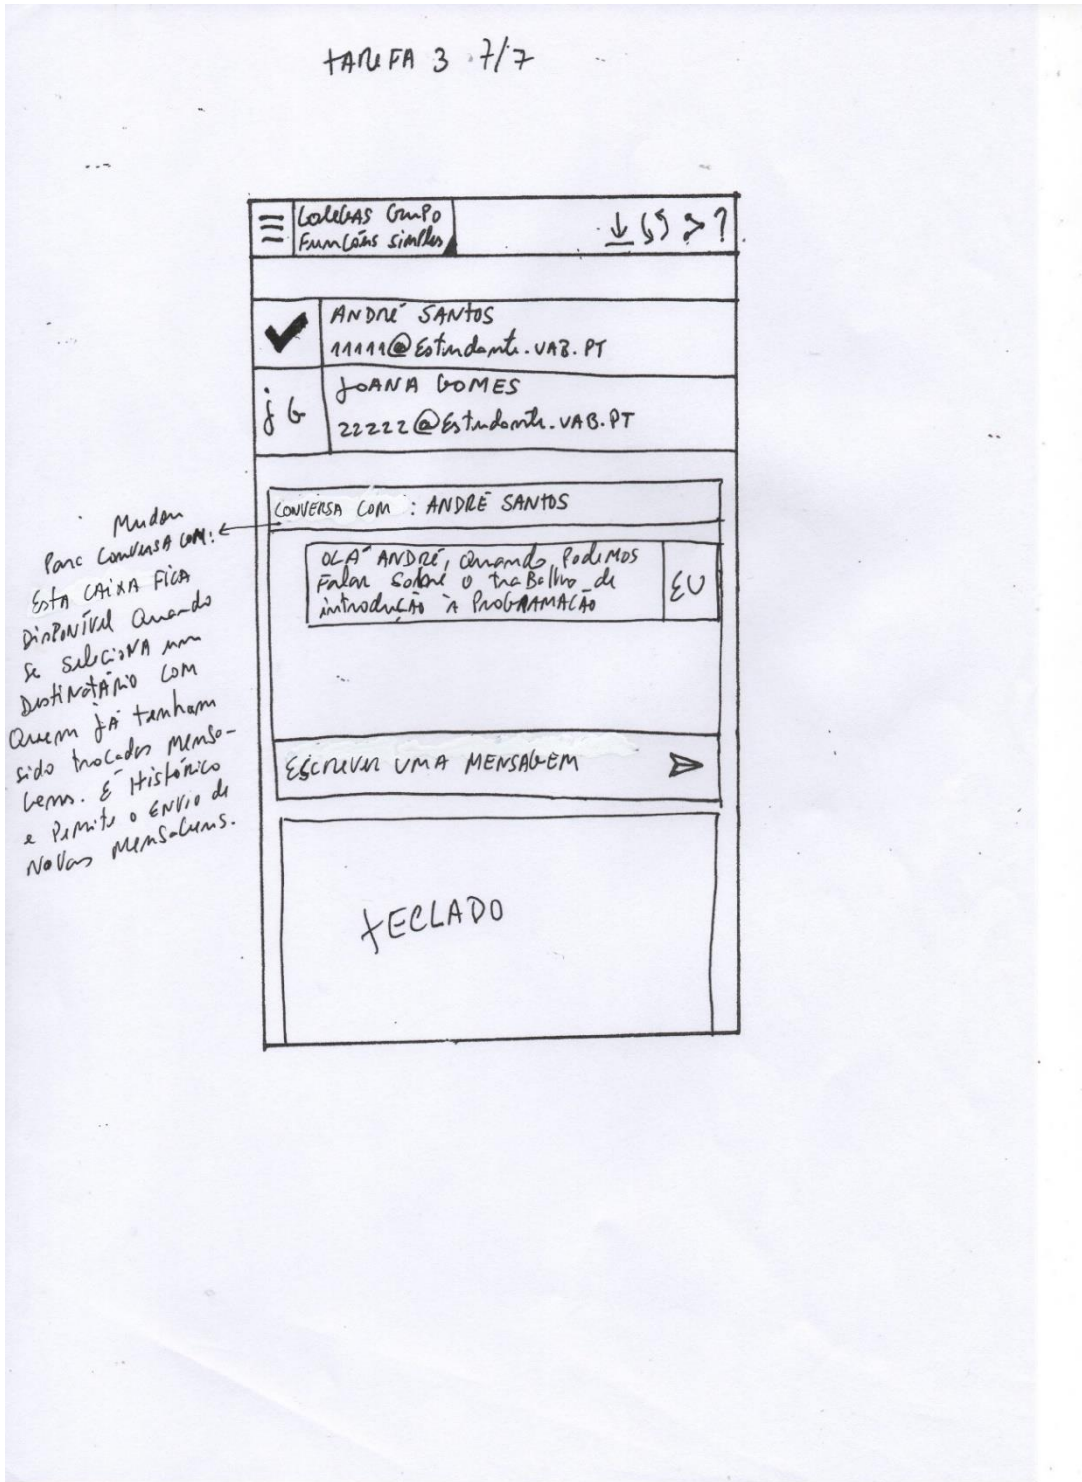 TAREFA 3 7/7
COLEGAS GRUPO
FUNÇÕES SIMPLES
?
ANDRÉ SANTOS
11111@Estudante.UAB.PT
JG
JOANA GOMES
22222@Estudante.UAB.PT
CONVERSA COM : ANDRÉ SANTOS
OLÁ ANDRÉ, QUANDO PODEMOS
FALAR SOBRE O TRABALHO DE
INTRODUÇÃO À PROGRAMAÇÃO
EU
ESCREVER UMA MENSAGEM
TECLADO
Mudou
Para CONVERSA COM:
ESTA CAIXA FICA
DISPONÍVEL Quando
se SELECIONA um
DESTINATÁRIO COM
Quem JÁ tenham
sido trocadas mensa-
gens. É Histórico
e Permite o ENVIO de
Novas mensagens.